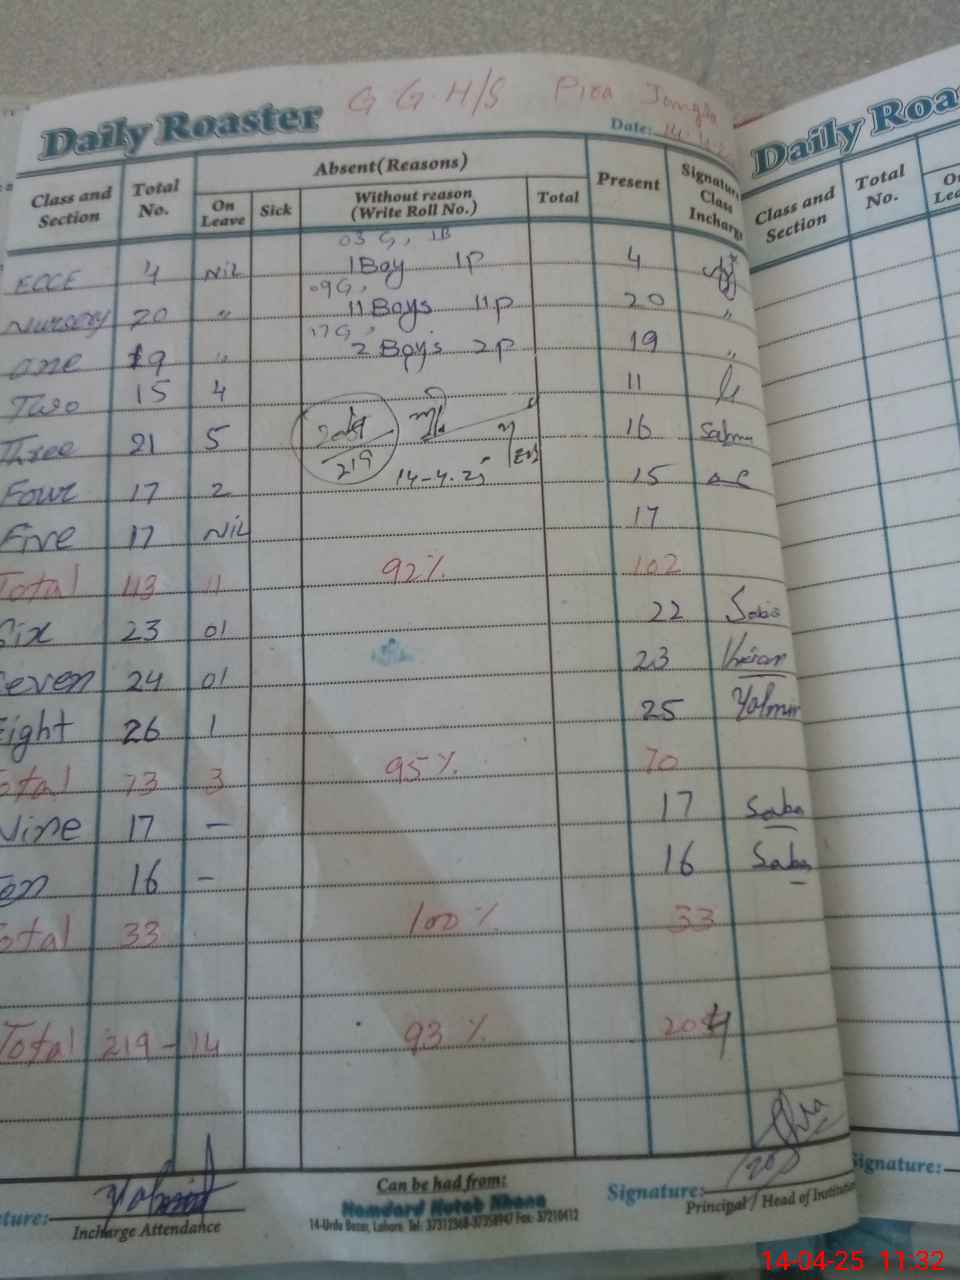 G G H/S
Daily Roaster
Date:
Class and Section Total No. Absent(Reasons) Present Signature Class Incharge
On Leave Sick Without reason (Write Roll No.) Total
03 G, 1B
ECCE 4 Nil 1 Boy 1p 4
09 G,
Nursery 20 " 11 Boys 11p 20 "
17 G,
one 19 " 2 Boys 2p 19 "
Two 15 4 11
Three 21 5 16 Salma
219
14-4-25
Four 17 2 15
Five 17 Nil 17
Total 113 11 92% 102
Six 23 01 22 Saba
Seven 24 01 23
Eight 26 1 25
Total 73 3 95% 70
Nine 17 – 17 Saba
Ten 16 – 16 Saba
Total 33 100% 33
Total 219 – 14 93% 204
ture:
Incharge Attendance
Can be had from:
Hamdard Kutab Khana
14-Urdu Bazar, Lahore. Tel: 37312368-37358947 Fax: 37210412
Signature:
Principal / Head of Institution
Daily Roa
Class and Section Total No. Lea
Signature:
14-04-25 11:32